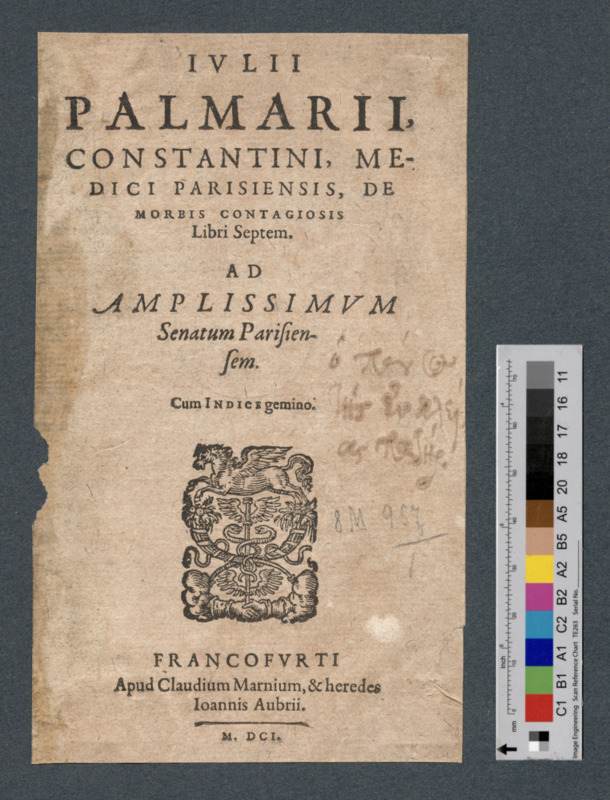 IVLII
PALMARII,
CONSTANTINI, ME-
DICI PARISIENSIS, DE
MORBIS CONTAGIOSIS
Libri Septem.
AD
AMPLISSIMVM
Senatum Pariſien-
ſem.
Cum INDICE gemino.
8 M 957
1
FRANCOFVRTI
Apud Claudium Marnium, & heredes
Ioannis Aubrii.
M. DCI.
C1 B1 A1 C2 B2 A2 B5 A5 20 18 17 16 11
Image Engineering Scan Reference Chart TE263 Serial No.
mm
inch